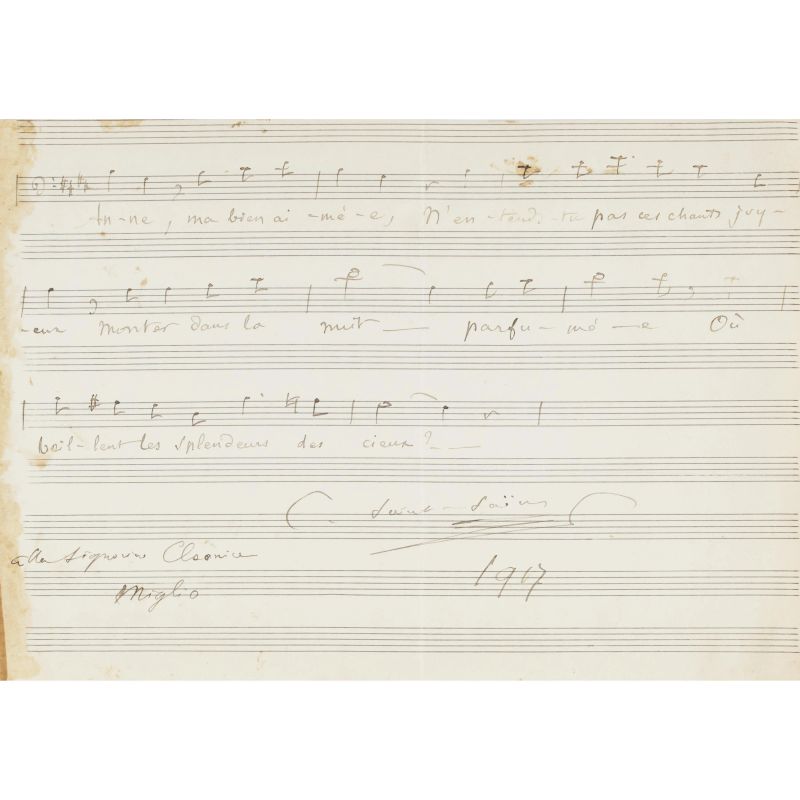 An-ne, ma bien ai-mé-e, N'en-tends-tu pas ces chants joy-
-eux monter dans la nuit — parfu-mé-e Où
bril-lent les splendeurs des cieux? —
C. Saint-Saëns
alla Signorina Cleonice
Miglio
1917